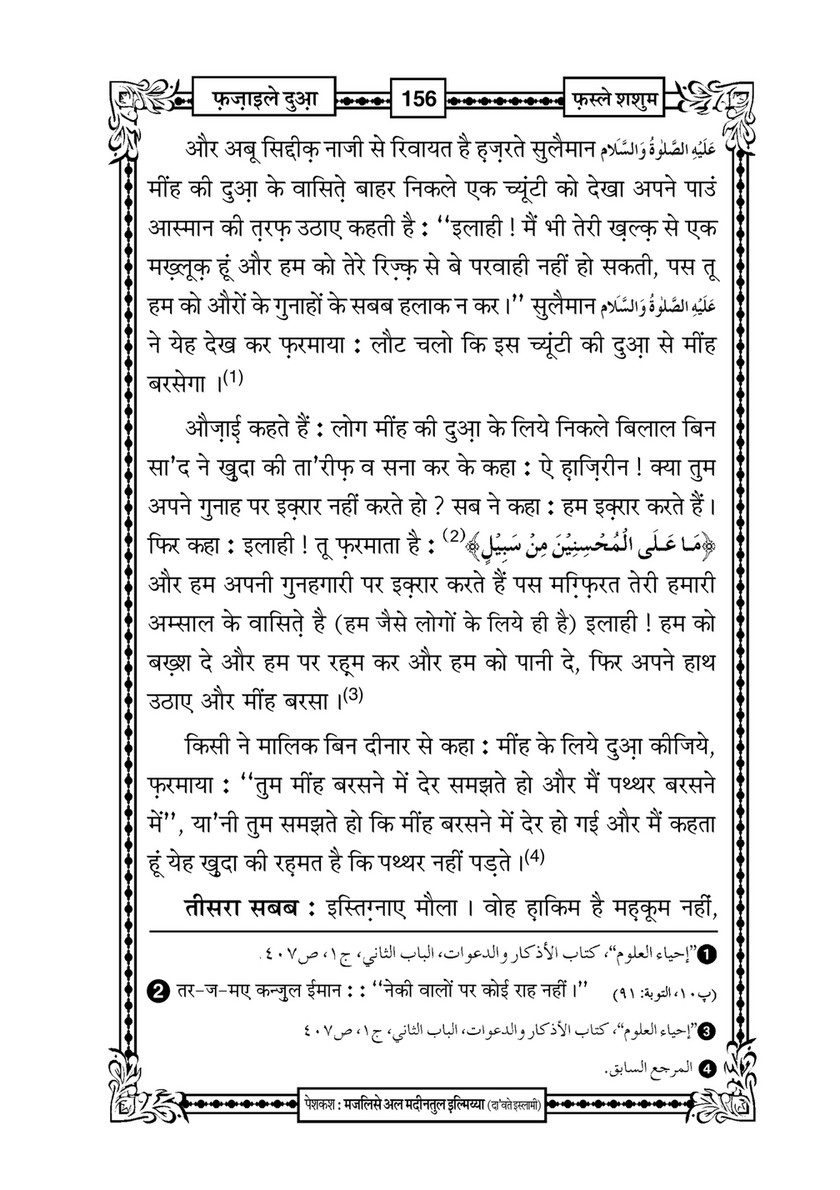 फ़ज़ाइले दुआ़
156
फ़स्ले शशुम
और अबू सिद्दीक़ नाजी से रिवायत है ह़ज़रते सुलैमान عَلَيْهِ الصَّلٰوةُ وَالسَّلَام
मींह की दुआ़ के वासित़े बाहर निकले एक च्यूंटी को देखा अपने पाउं
आस्मान की त़रफ़ उठाए कहती है : ‘‘इलाही ! मैं भी तेरी ख़ल्क़ से एक
मख़्लूक़ हूं और हम को तेरे रिज़्क़ से बे परवाही नहीं हो सकती, पस तू
हम को औरों के गुनाहों के सबब हलाक न कर ।’’ सुलैमान عَلَيْهِ الصَّلٰوةُ وَالسَّلَام
ने येह देख कर फ़रमाया : लौट चलो कि इस च्यूंटी की दुआ़ से मींह
बरसेगा ।(1)
औज़ाई़ कहते हैं : लोग मींह की दुआ़ के लिये निकले बिलाल बिन
सा’द ने खुदा की ता’रीफ़ व सना कर के कहा : ऐ ह़ाज़िरीन ! क्या तुम
अपने गुनाह पर इक़्रार नहीं करते हो ? सब ने कहा : हम इक़्रार करते हैं ।
फिर कहा : इलाही ! तू फ़रमाता है : (2)﴿مَا عَلَى الْمُحْسِنِيْنَ مِنْ سَبِيْلٍ﴾
और हम अपनी गुनहगारी पर इक़्रार करते हैं पस मग़्फ़िरत तेरी हमारी
अम्साल के वासित़े है (हम जैसे लोगों के लिये ही है) इलाही ! हम को
बख़्श दे और हम पर रह़्म कर और हम को पानी दे, फिर अपने हाथ
उठाए और मींह बरसा ।(3)
किसी ने मालिक बिन दीनार से कहा : मींह के लिये दुआ़ कीजिये,
फ़रमाया : ‘‘तुम मींह बरसने में देर समझते हो और मैं पथ्थर बरसने
में’’, या’नी तुम समझते हो कि मींह बरसने में देर हो गई और मैं कहता
हूं येह खुदा की रह़मत है कि पथ्थर नहीं पड़ते ।(4)
तीसरा सबब : इस्तिग़्नाए मौला । वोह ह़ाकिम है मह़कूम नहीं,
❶ "إحياء العلوم"، كتاب الأذكار والدعوات، الباب الثاني، ج١، ص٤٠٧.
❷ तर-ज-मए कन्ज़ुल ईमान : : ‘‘नेकी वालों पर कोई राह नहीं ।’’ (پ١٠، التوبة: ٩١)
❸ "إحياء العلوم"، كتاب الأذكار والدعوات، الباب الثاني، ج١، ص٤٠٧
❹ المرجع السابق.
पेशकश : मजलिसे अल मदीनतुल इ़ल्मिय्या (दा’वते इस्लामी)